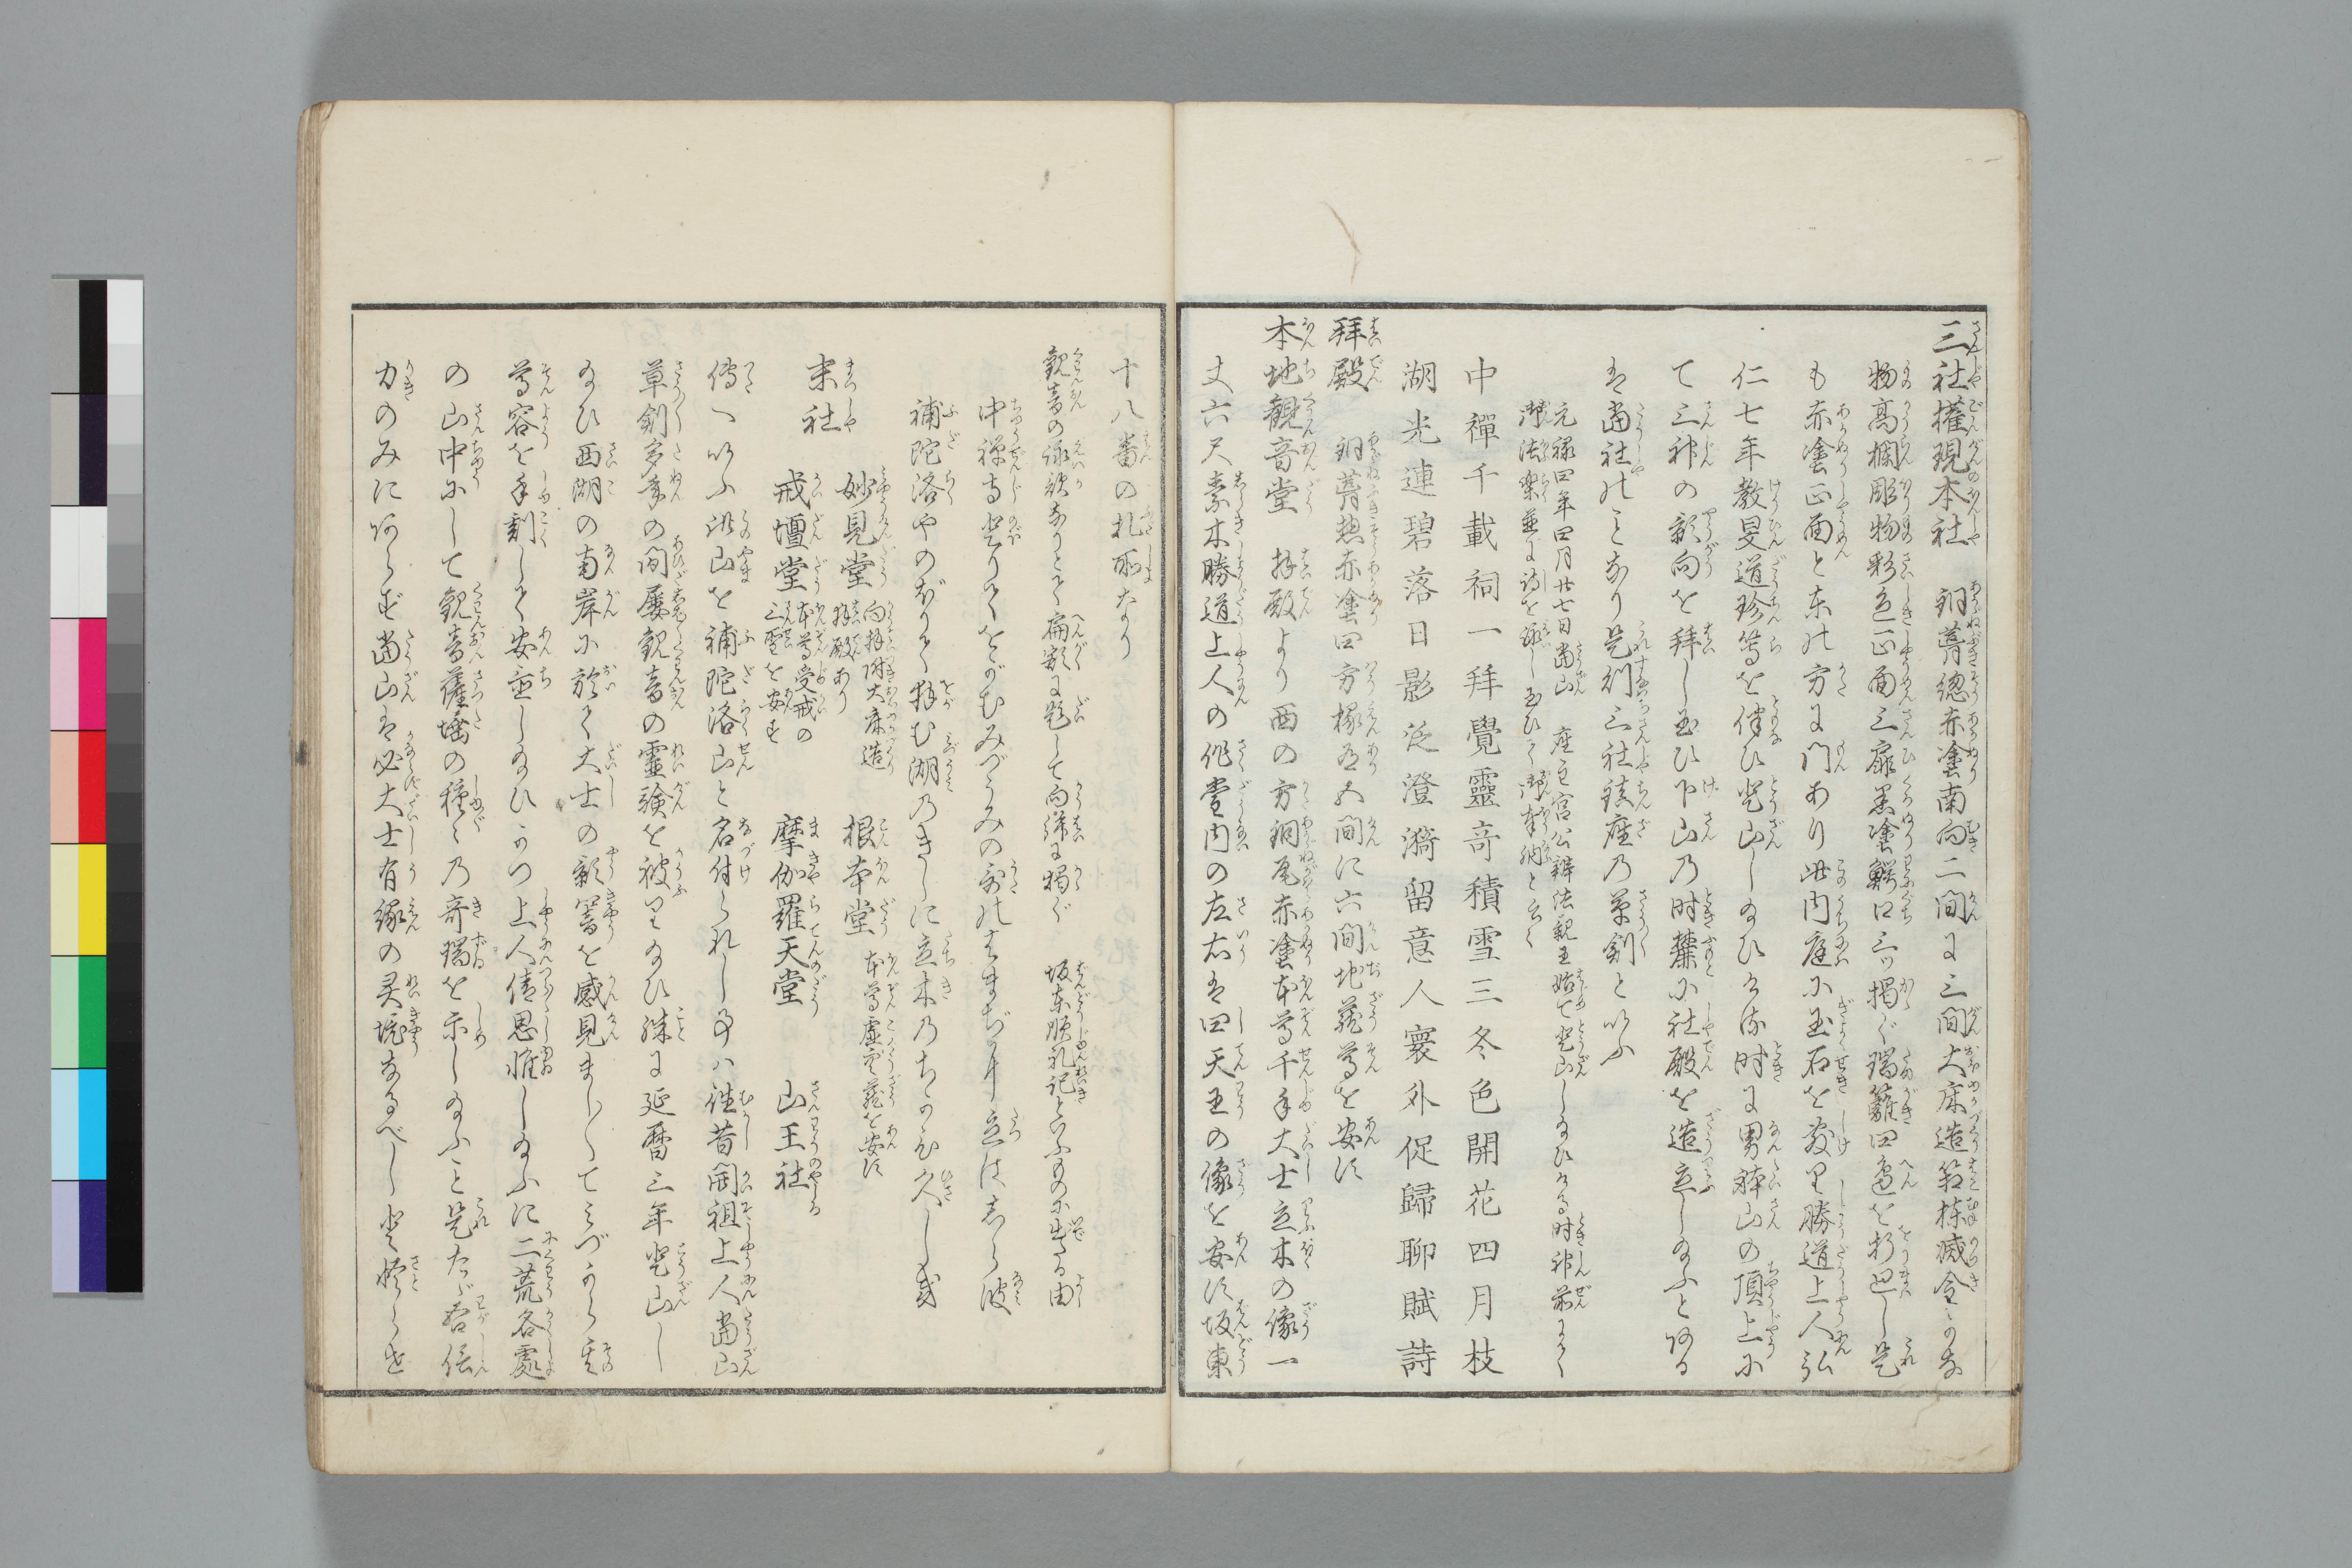 三社権現本社 銅葺総赤塗南向二間に三間大床造箱棟滅金かな
物高欄彫物彩色正面三扉黒塗鰐口三ツ掲ぐ瑞籬四邉を折廻し是
も赤塗正面と東の方に門あり此内庭に玉石を敷り勝道上人弘
仁七年教旻道珍等を伴ひ登山し給ひける時に男躰山の頂上に
て三神の影向を拝し玉ひ下山の時麓に社殿を造立し給ふとある
は当社のことなり是則三社鎮座の草創といふ
元禄四年四月廿七日当山 座主宮公辨法親王始て登山し給ひける時神前にて
御法楽並に詩を詠し玉ひて御奉納と云々
中禪千載祠一拜覺靈竒積雪三冬色開花四月枝
湖光連碧落日影泛澄漪留意人寰外促歸聊賦詩
拜殿 銅葺惣赤塗四方椽五間に六間地蔵尊を安ず
本地観音堂 拝殿より西の方銅瓦赤塗本尊千手大士立木の像一
丈六尺素木勝道上人の作堂内の左右は四天王の像を安ず坂東
十八番の札所なり
観音の詠歌なりとて扁額に題して向拝に掲ぐ 坂東順礼記といふものに出たる由
中禅寺登りてをがむみづうみの歌のはまぢに立はしら波
補陀洛やのぼりて拝む湖のきしに立木のちかひ久しき
末社 妙見堂 向拝附大床造拝殿あり 根本堂 本尊虚空蔵を安ず
戒壇堂 本尊受戒の三聖を安ず 摩伽羅天堂 山王社
傳へいふ此山を補陀洛山と名付られし事ハ往昔開祖上人当山
草創多年の間屡観音の霊験を被り給ひ殊に延暦三年登山し
給ひ西湖の南岸に於て大士の影嚮を感見ましましてみづから其
尊容を手刻して安置し給ひかつ上人倩思惟し給ふに二荒各處
の山中にして観音薩埵の種々の奇瑞を示し給ふこと是たゞ吾信
力のみにあらず当山は必大士有縁の灵境なるべしと悟らせ